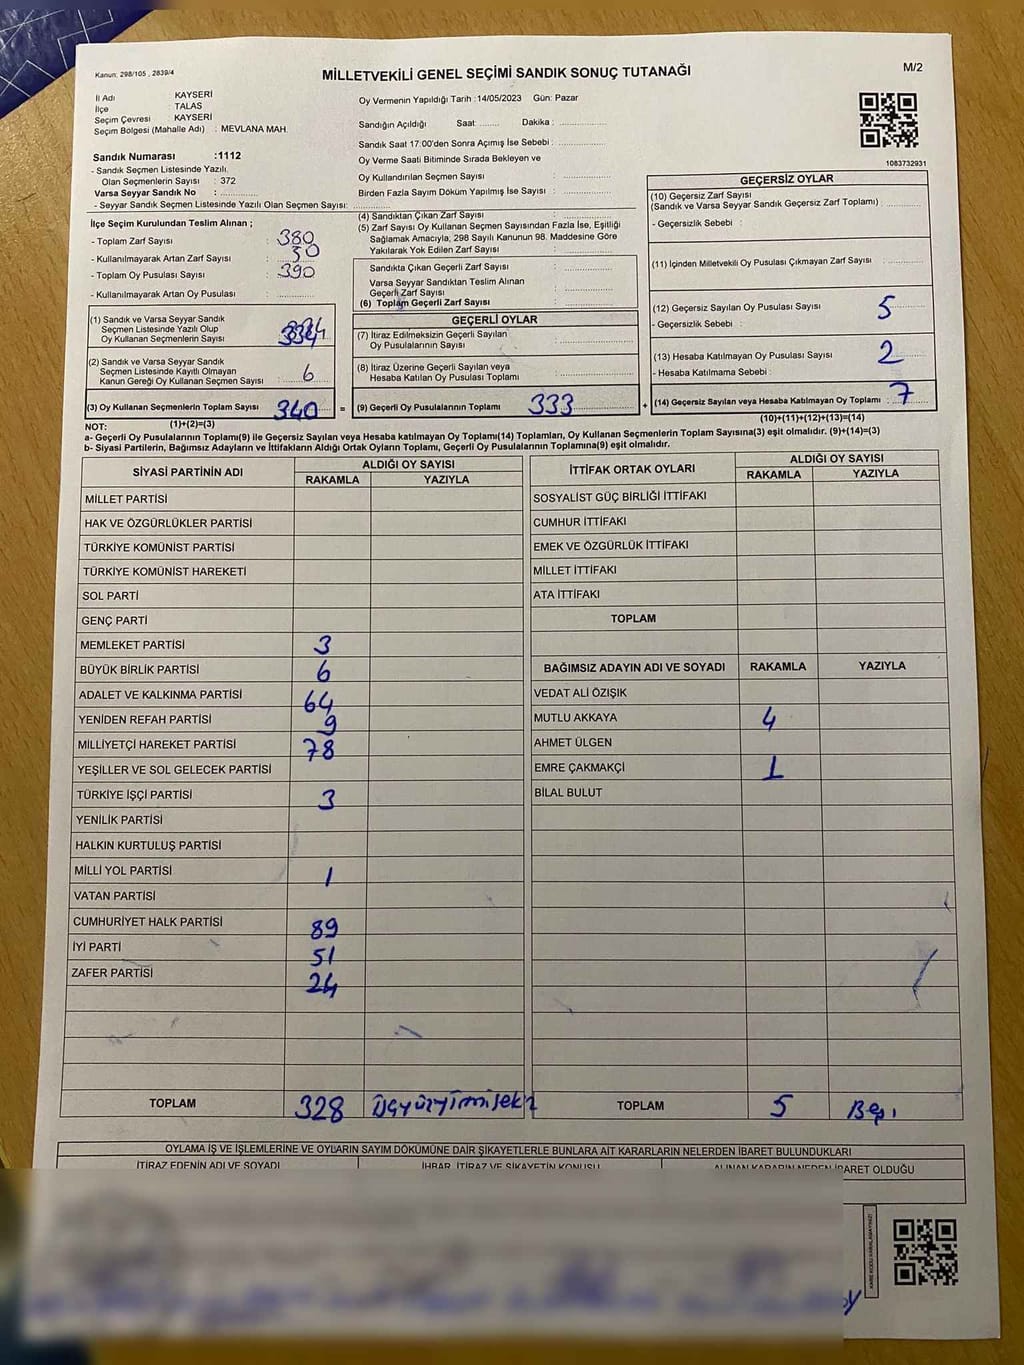 Kanun: 298/105 , 2839/4
MİLLETVEKİLİ GENEL SEÇİMİ SANDIK SONUÇ TUTANAĞI
M/2
İl Adı KAYSERİ
İlçe : TALAS
Seçim Çevresi : KAYSERİ
Seçim Bölgesi (Mahalle Adı) : MEVLANA MAH.
Oy Vermenin Yapıldığı Tarih :14/05/2023 Gün: Pazar
Sandığın Açıldığı Saat: ........ Dakika : ....................
Sandık Saat 17:00'den Sonra Açımış İse Sebebi : ....................
Oy Verme Saati Bitiminde Sırada Bekleyen ve
Oy Kullandırılan Seçmen Sayısı : ....................
Birden Fazla Sayım Döküm Yapılmış İse Sayısı : ....................
1083732931
Sandık Numarası :1112
- Sandık Seçmen Listesinde Yazılı
Olan Seçmenlerin Sayısı : 372
Varsa Seyyar Sandık No : ....................
- Seyyar Sandık Seçmen Listesinde Yazılı Olan Seçmen Sayısı: ....................
İlçe Seçim Kurulundan Teslim Alınan ;
- Toplam Zarf Sayısı : 380
- Kullanılmayarak Artan Zarf Sayısı : 50
- Toplam Oy Pusulası Sayısı : 390
- Kullanılmayarak Artan Oy Pusulası : ....................
(1) Sandık ve Varsa Seyyar Sandık
Seçmen Listesinde Yazılı Olup
Oy Kullanan Seçmenlerin Sayısı : 334
(2) Sandık ve Varsa Seyyar Sandık
Seçmen Listesinde Kayıtlı Olmayan
Kanun Gereği Oy Kullanan Seçmen Sayısı : 6
(3) Oy Kullanan Seçmenlerin Toplam Sayısı 340 =
(1)+(2)=(3)
(4) Sandıktan Çıkan Zarf Sayısı : ....................
(5) Zarf Sayısı Oy Kullanan Seçmen Sayısından Fazla İse, Eşitliği
Sağlamak Amacıyla, 298 Sayılı Kanunun 98. Maddesine Göre
Yakılarak Yok Edilen Zarf Sayısı : ....................
Sandıkta Çıkan Geçerli Zarf Sayısı : ....................
Varsa Seyyar Sandıktan Teslim Alınan
Geçerli Zarf Sayısı : ....................
(6) Toplam Geçerli Zarf Sayısı : ....................
GEÇERLİ OYLAR
(7) İtiraz Edilmeksizin Geçerli Sayılan
Oy Pusulalarının Sayısı : ....................
(8) İtiraz Üzerine Geçerli Sayılan veya
Hesaba Katılan Oy Pusulası Toplamı : ....................
(9) Geçerli Oy Pusulalarının Toplamı 333 +
GEÇERSİZ OYLAR
(10) Geçersiz Zarf Sayısı
(Sandık ve Varsa Seyyar Sandık Geçersiz Zarf Toplamı) : ....................
- Geçersizlik Sebebi :
(11) İçinden Milletvekili Oy Pusulası Çıkmayan Zarf Sayısı : ....................
(12) Geçersiz Sayılan Oy Pusulası Sayısı : 5
- Geçersizlik Sebebi :
(13) Hesaba Katılmayan Oy Pusulası Sayısı : 2
- Hesaba Katılmama Sebebi :
(14) Geçersiz Sayılan veya Hesaba Katılmayan Oy Toplamı : 7
(10)+(11)+(12)+(13)=(14)
NOT:
a- Geçerli Oy Pusulalarının Toplamı(9) ile Geçersiz Sayılan veya Hesaba katılmayan Oy Toplamı(14) Toplamları, Oy Kullanan Seçmenlerin Toplam Sayısına(3) eşit olmalıdır. (9)+(14)=(3)
b- Siyasi Partilerin, Bağımsız Adayların ve İttifakların Aldığı Ortak Oyların Toplamı, Geçerli Oy Pusulalarının Toplamına(9) eşit olmalıdır.
SİYASİ PARTİNİN ADI ALDIĞI OY SAYISI
RAKAMLA YAZIYLA
MİLLET PARTİSİ
HAK VE ÖZGÜRLÜKLER PARTİSİ
TÜRKİYE KOMÜNİST PARTİSİ
TÜRKİYE KOMÜNİST HAREKETİ
SOL PARTİ
GENÇ PARTİ
MEMLEKET PARTİSİ 3
BÜYÜK BİRLİK PARTİSİ 6
ADALET VE KALKINMA PARTİSİ 64
YENİDEN REFAH PARTİSİ 9
MİLLİYETÇİ HAREKET PARTİSİ 78
YEŞİLLER VE SOL GELECEK PARTİSİ
TÜRKİYE İŞÇİ PARTİSİ 3
YENİLİK PARTİSİ
HALKIN KURTULUŞ PARTİSİ
MİLLİ YOL PARTİSİ 1
VATAN PARTİSİ
CUMHURİYET HALK PARTİSİ 89
İYİ PARTİ 51
ZAFER PARTİSİ 24
TOPLAM 328 Üçyüzyirmisekiz
İTTİFAK ORTAK OYLARI ALDIĞI OY SAYISI
RAKAMLA YAZIYLA
SOSYALİST GÜÇ BİRLİĞİ İTTİFAKI
CUMHUR İTTİFAKI
EMEK VE ÖZGÜRLÜK İTTİFAKI
MİLLET İTTİFAKI
ATA İTTİFAKI
TOPLAM
BAĞIMSIZ ADAYIN ADI VE SOYADI RAKAMLA YAZIYLA
VEDAT ALİ ÖZIŞIK
MUTLU AKKAYA 4
AHMET ÜLGEN
EMRE ÇAKMAKÇİ 1
BİLAL BULUT
TOPLAM 5 Beş
OYLAMA İŞ VE İŞLEMLERİNE VE OYLARIN SAYIM DÖKÜMÜNE DAİR ŞİKAYETLERLE BUNLARA AİT KARARLARIN NELERDEN İBARET BULUNDUKLARI
İTİRAZ EDENİN ADI VE SOYADI İHBAR, İTİRAZ VE ŞİKAYETİN KONUSU ALINAN KARARIN NEDEN İBARET OLDUĞU